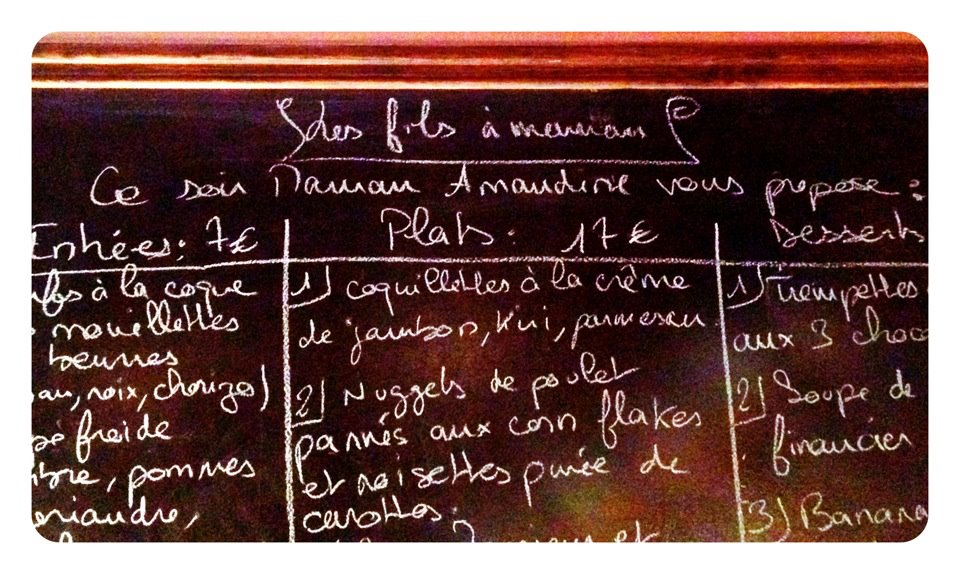 Les fils à maman
Ce soir Maman Amandine vous propose :
Entrées: 7€
à la coque
mouillettes
beurres
noix, chorizo)
froide
pommes
coriandre,
Plats: 17€
1) coquillettes à la crème
de jambon, kiri, parmesan
2) Nuggets de poulet
pannés aux corn flakes
et noisettes purée de
carottes.
et
Desserts
1) Trempettes
aux 3 choc
2) Soupe de
financier
3) Banana